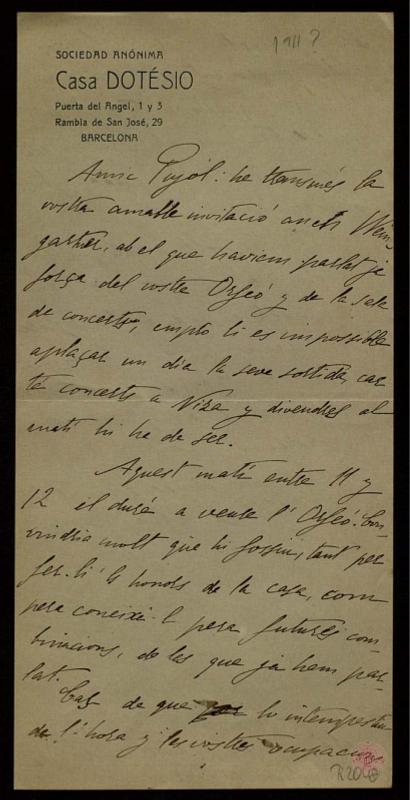 1911?
SOCIEDAD ANÓNIMA
Casa DOTÉSIO
Puerta del Angel, 1 y 3
Rambla de San José, 29
BARCELONA
Amic Pujol: he transmés la
vostra amable invitació an eth Wein
gartner, ab el que haviem parlat ja
força del vostre Orfeó y de la sala
de concerts; empro li es impossible
aplaçar un dia la seva sortida, car
té concerts a Niza y divendres al
matí hi ha de ser.
Aquest matí entre 11 y
12 el duré a veure l'Orfeó. Con
vindria molt que hi fossiu, tant per
fer-li 'ls honors de la casa, com
pera coneixe'l pera futures com
binacions, de les que ja hem par
lat.
Cas de que lo intempestiu
de l'hora y les vostres ocupacions
R2040